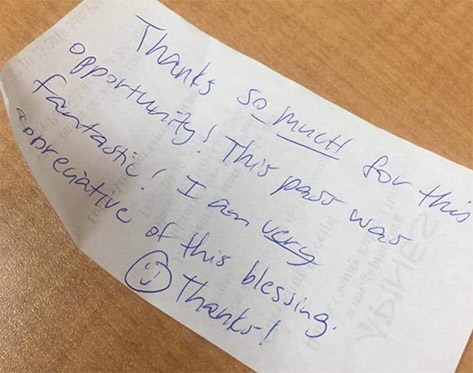 Thanks so much for this
opportunity! This pass was
fantastic! I am very
appreciative of this blessing.
Thanks!